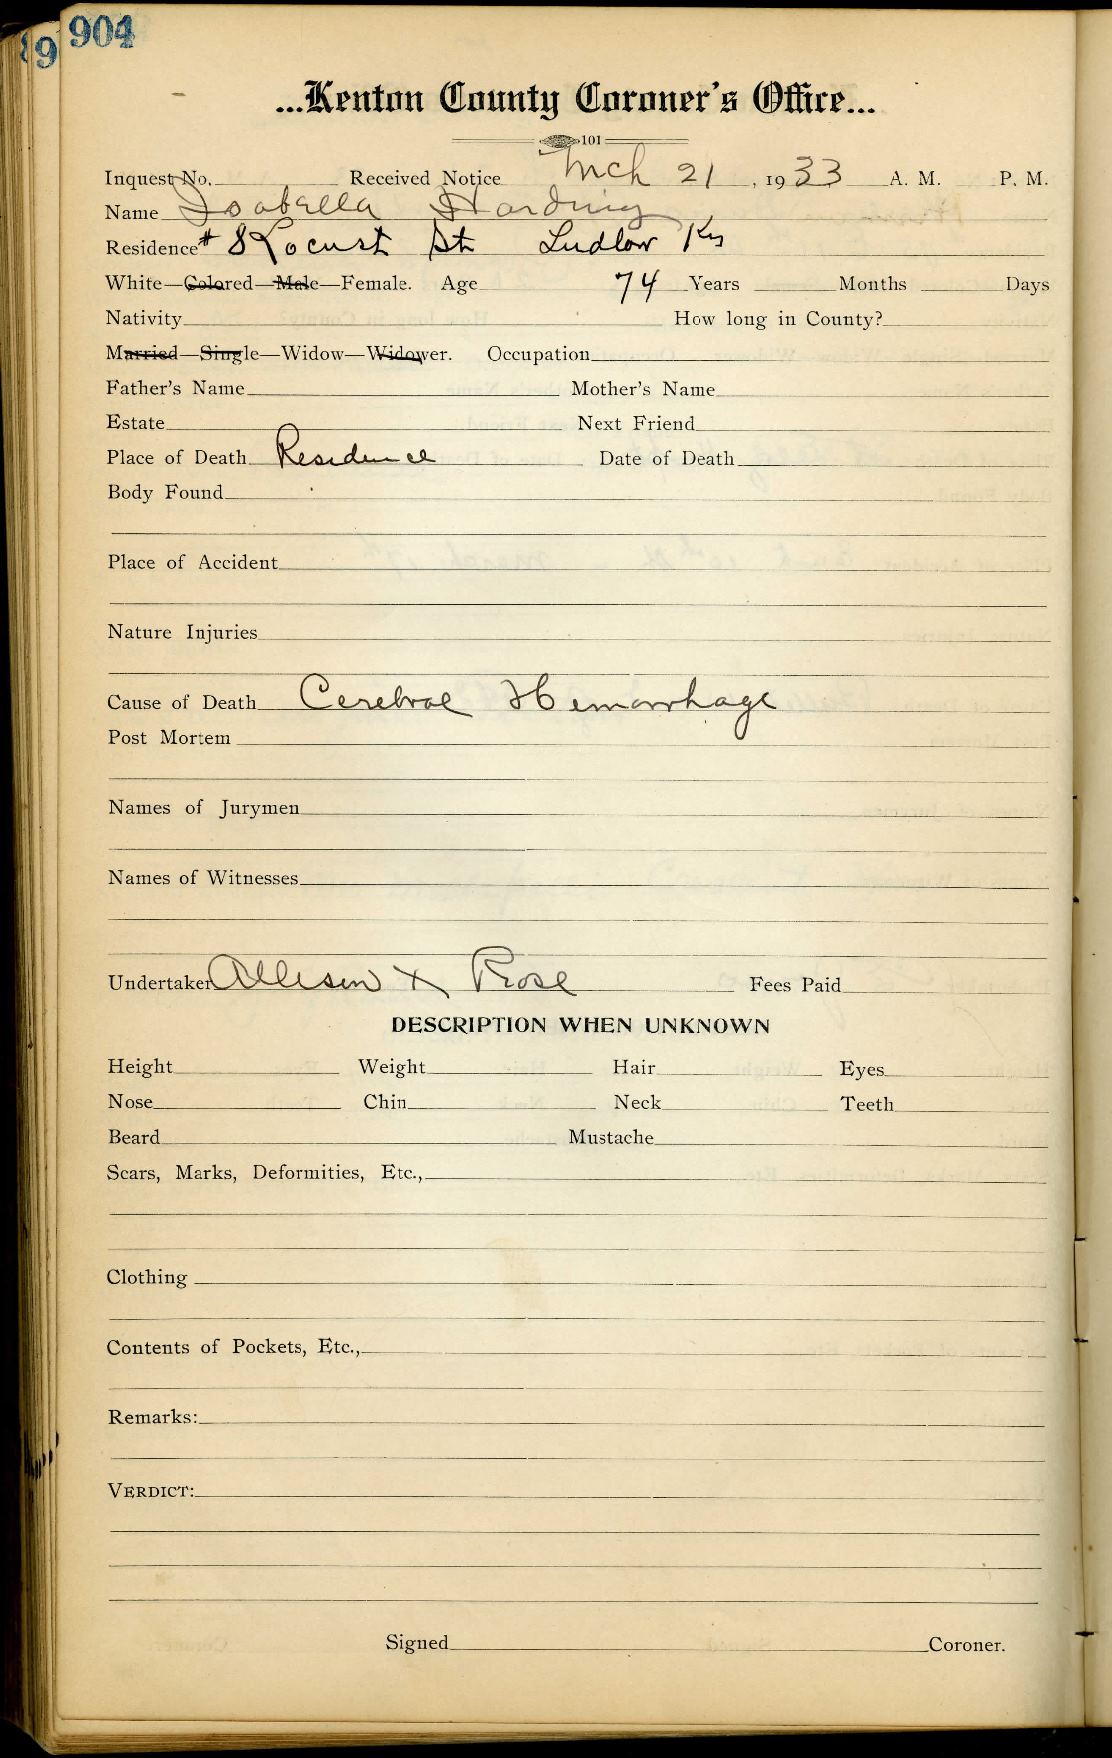 904
9
...Kenton County Coroner's Office...
101
Inquest No. Received Notice Mch 21, 1933 A. M. P. M.
Name Isabella Harding
Residence # 8 Locust St Ludlow Ky
White—Colored—Male—Female. Age 74 Years Months Days
Nativity How long in County?
Married—Single—Widow—Widower. Occupation
Father's Name Mother's Name
Estate Next Friend
Place of Death Residence Date of Death
Body Found
Place of Accident
Nature Injuries
Cause of Death Cerebral Hemorrhage
Post Mortem
Names of Jurymen
Names of Witnesses
Undertaker Allison & Rose Fees Paid
DESCRIPTION WHEN UNKNOWN
Height Weight Hair Eyes
Nose Chin Neck Teeth
Beard Mustache
Scars, Marks, Deformities, Etc.,
Clothing
Contents of Pockets, Etc.,
Remarks:
VERDICT:
Signed Coroner.